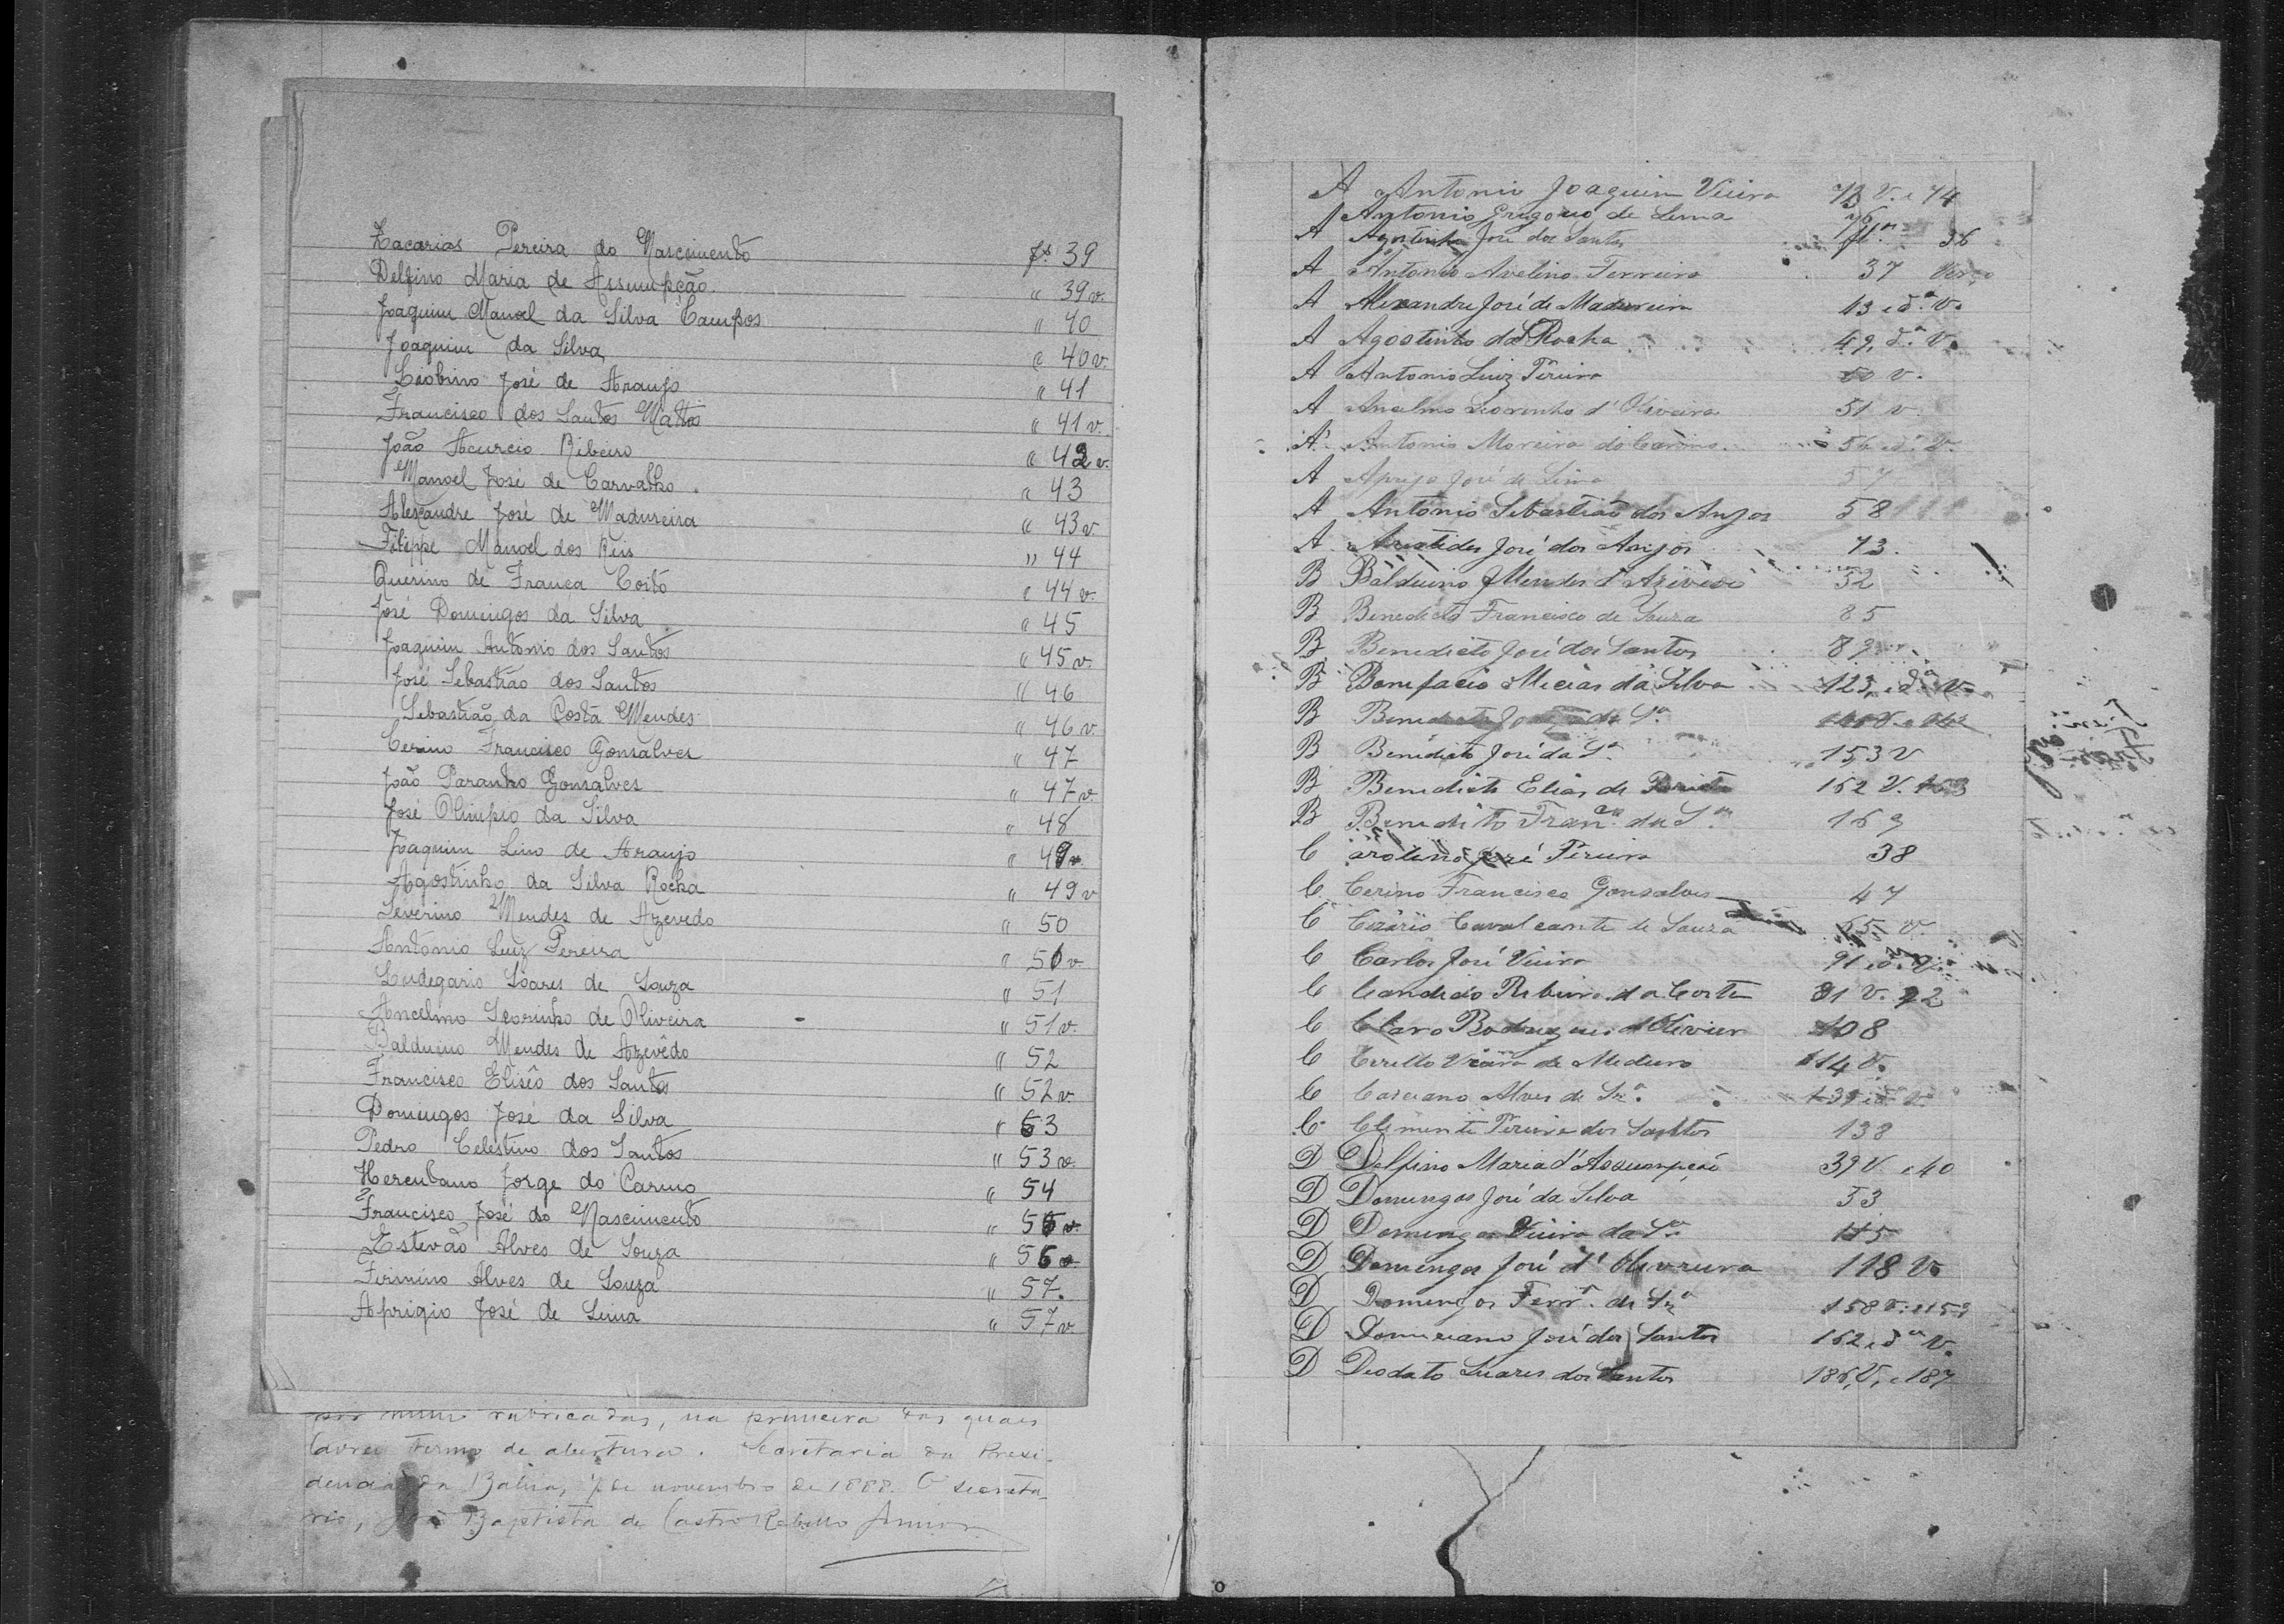 Zacarias Pereira do Nascimento fs. 39
Delfino Maria de Assumpção " 39 v.
Joaquim Manoel da Silva Campos " 40
Joaquim da Silva " 40 v.
José de Araujo " 41
Francisco dos Santos Mattos " 41 v.
João Acurcio Ribeiro " 42 v.
Manoel José de Carvalho " 43
Alexandre José de Madureira " 43 v.
Filippe Manoel dos Reis " 44
Querino de França Coito " 44 v.
José Domingos da Silva " 45
Joaquim Antonio dos Santos " 45 v.
José Sebastião dos Santos " 46
Sebastião da Costa Mendes " 46 v.
Cerino Francisco Gonsalves " 47
João Paranho Gonsalves " 47 v.
José Olimpio da Silva " 48
Joaquim Lino de Araujo " 49 v.
Agostinho da Silva Rocha " 49 v
Severino Mendes de Azevedo " 50
Antonio Luiz Pereira " 50 v.
Ludegario Soares de Souza " 51
Ancelmo Leorinho de Oliveira " 51 v.
Balduino Mendes de Azevêdo " 52
Francisco Elisêo dos Santos " 52 v
Domingos José da Silva " 53
Pedro Celestino dos Santos " 53 v.
Herculano Jorge do Carmo " 54
Francisco José do Nascimento " 55 v.
Estevão Alves de Souza " 56 v
Firmino Alves de Souza " 57.
Aprigio José de Lima " 57 v.
por mim rubricadas, na primeira das quaes
lavrei termo de abertura. Secretaria da Presi-
dencia da Bahia, 7 de novembro de 1888. O secreta-
rio, João Baptista de Castro Rebello Junior
A Antonio Joaquim Vieira 73 V. e 74
A Antonio Grigorio de Lima 76
A Agostinho José dos Santos fl.as 36
A Antonio Avelino Ferreira 37 Verso
A Alexandre José de Madureira 43 e d.ª V.
A Agostinho da S Rocha 49, d.ª V.
A Antonio Luiz Pereira 50 v.
A Ancelmo Leorinho d'Oliveira 51 v.
A Antonio Moreira do Carmo 56 e d.ª V.
A Aprigo José de Lima 57
A Antonio Sebastião dos Anjos 58
A Aristides José dos Anjos 73.
B Balduino Mendes d'Azevedo 52
B Benedicto Francisco de Souza 85
B Benedicto José dos Santos 89 v.
B Bonifacio Micias da Silva 123, e d.ª V.
B Benedicto da S.ª
B Benedicto José da S.ª 153 V
B Benedicto Elias de 162 V. 163
B Benedito Fran.co da S.ª 169
C arolino José Pereira 38
C Cerino Francisco Gonsalves 47
C Cizario Cavalcante de Souza 65 v.
C Carlos José Vieira 91 e d.ª V.
C Candido Ribeiro da Costa 91 V. 92
C Claro Rodrigues d'Olivier 108
C Cirillo Vieira de Medeiro 114 V.
C Casciano Alves de S.ª 139 e d.ª V.
C Clemente Pereira dos Santos 138
D Delfino Maria d'Assumpção 39 V. e 40
D Domingos José da Silva 53
D Domingos Vieira da S.ª 115
D Domingos José d'Oliveira 118 V.
D Domingos Ferr.ª da S.ª 158 V. e 159
D Domiciano José dos Santos 162 e d.ª V.
D Deodato Soares dos Santos 186, V, e 187